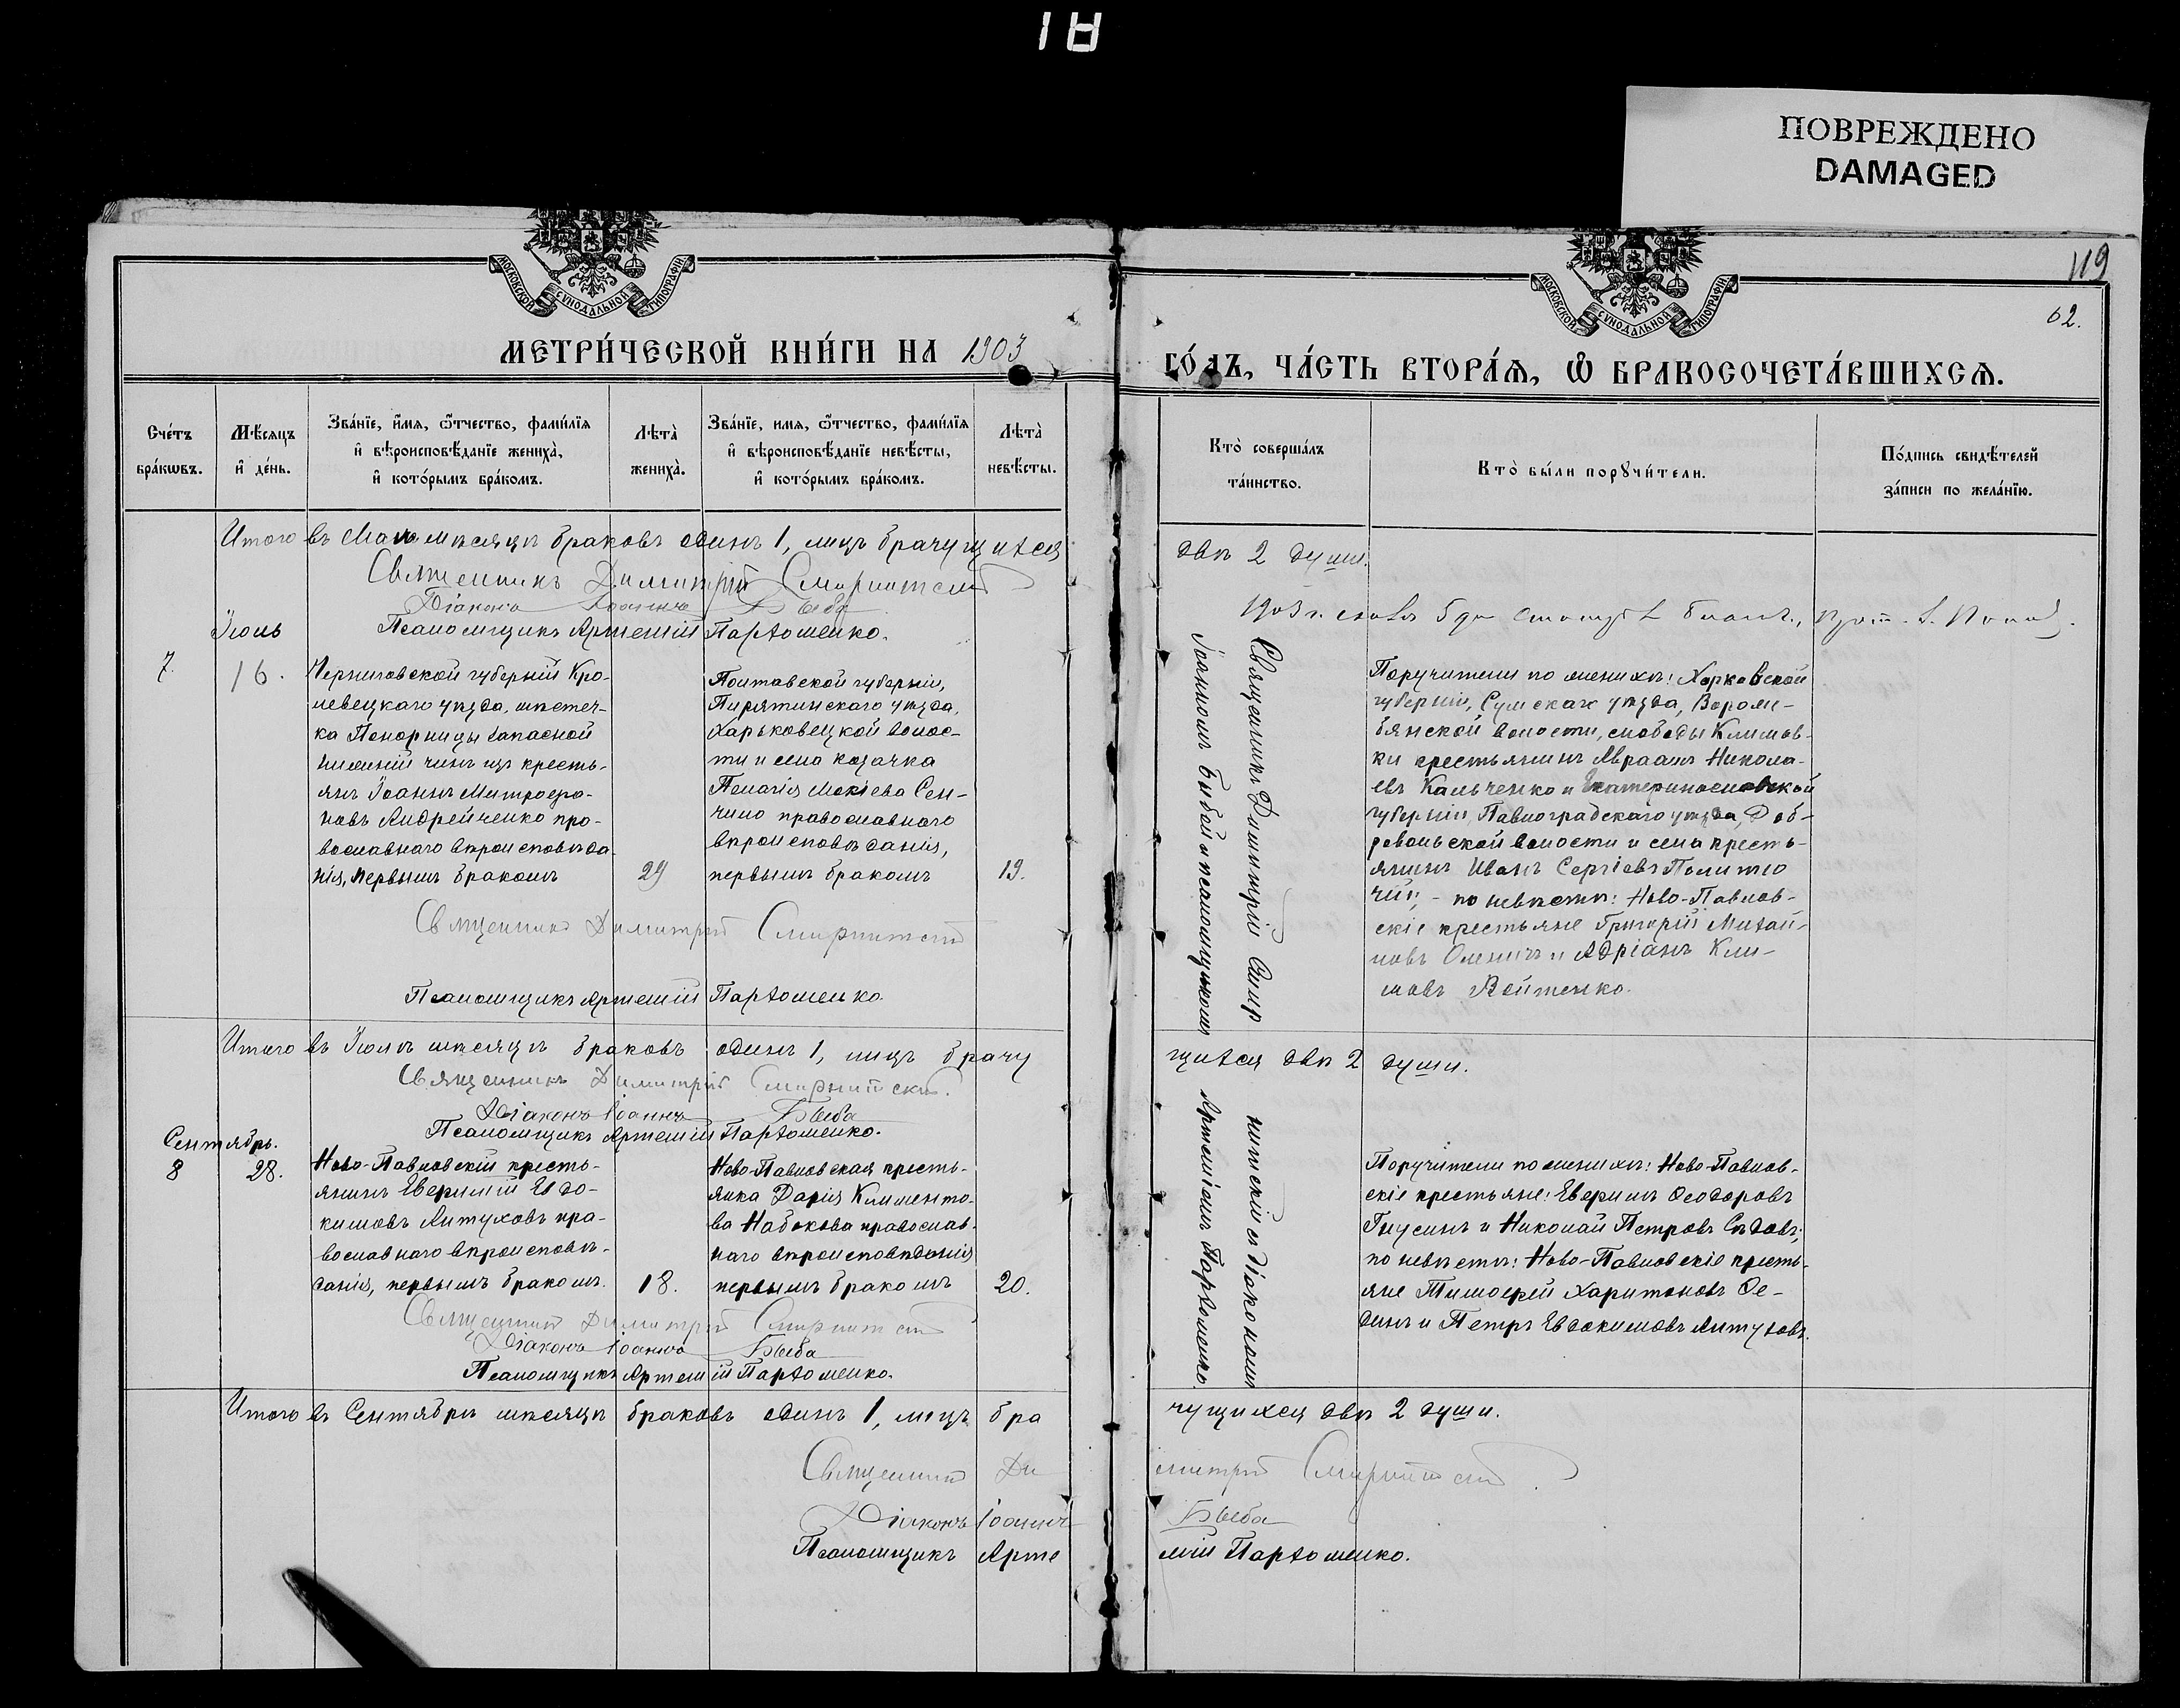 ПОВРЕЖДЕНО
DAMAGED
119
62.
МОСКОВСКОЙ СѴНОДАЛЬНОЙ ТИПОГРАФІИ
МОСКОВСКОЙ СѴНОДАЛЬНОЙ ТИПОГРАФІИ
МЕТРИ́ЧЕСКОЙ КНИ́ГИ НА 1903
ГО́ДЪ, ЧА́СТЬ ВТОРА́Я, Ѡ БРАКОСОЧЕТА́ВШИХСЯ.
Сче́тъ
бра́кѡвъ.
Мѣ́сяцъ
и҆ де́нь.
Зва́нїе, и҆́мя, ѻ҆́тчество, фами́лїя
и҆ вѣроисповѣ́данїе жениха̀,
и҆ кото́рымъ бра́комъ.
Лѣта̀
жениха̀.
Зва́нїе, имя, ѻ҆́тчество, фами́лїя
и҆ вѣроисповѣ́данїе невѣ́сты,
и҆ кото́рымъ бра́комъ.
Лѣта̀
невѣ́сты.
Кто̀ соверша́лъ
та́инство.
Кто̀ бы́ли порꙋчи́тели.
По́дпись свидѣ́телей
за́писи по жела́нїю.
Итого въ Маѣ мѣсяцѣ браковъ одинъ 1, лицъ брачущихся
двѣ 2 души.
Священникъ Димитрій Смирнитскій
Діаконъ Іоаннъ Быба
Псаломщикъ Артемій Пархоменко.
1903 г.
Іюль
7.
16.
Черниговской губерніи Кро-
левецкаго уѣзда, мѣстеч-
ка Понорницы запасной
нижній чинъ изъ кресть-
янъ Іоаннъ Митрофа-
новъ Андрейченко пра-
вославнаго вѣроисповѣда-
нія, первымъ бракомъ
29
Полтавской губерніи,
Пирятинскаго уѣзда,
Харьковецкой волос-
ти и села козачка
Пелагія Мокіева Сен-
чило православнаго
вѣроисповѣданія,
первымъ бракомъ
19.
Священникъ Димитрій Смирнитскій съ діакономъ
Іоанномъ Быбой и псаломщикомъ Артеміемъ Пархоменко.
Поручители по женихѣ: Харковской
губерніи, Сумскаго уѣзда, Ворожм-
бянской волости, слободы Климов-
ки крестьянинъ Авраамъ Никола-
евъ Кальченко и Екатеринославской
губерніи, Павлоградскаго уѣзда, Доб-
ровольской волости и села кресть-
янинъ Иванъ Сергіевъ
по невѣстѣ: Ново-Павлов-
скіе крестьяне Григорій Михай-
ловъ и Адріанъ Кли-
мовъ Войтенко.
Священникъ Димитрій Смирнитскій
Псаломщикъ Артемій Пархоменко
Итого въ Іюлѣ мѣсяцѣ браковъ одинъ 1, лицъ брачу
щихся двѣ 2 души.
Священникъ Димитрій Смирнитскій.
Діаконъ Іоаннъ Быба
Псаломщикъ Артемій Пархоменко.
Сентябрь.
8
28.
Ново-Павловскій кресть-
янинъ Евфимій Евдо-
кимовъ Литуховъ пра-
вославнаго вѣроисповѣ-
данія, первымъ бракомъ.
18.
Ново-Павловская кресть-
янка Дарія Клименто-
ва Набокова православ-
наго вѣроисповѣданія
первымъ бракомъ
20.
Поручители по женихѣ: Ново-Павлов-
скіе крестьяне: Евфимъ Ѳеодоровъ
Гнусинъ и Николай Петровъ Сѣдовъ;
по невѣстѣ: Ново-Павловскіе кресть-
яне Тимофей Харитоновъ Ѳе-
динъ и Петръ Евдокимовъ Литуховъ.
Священникъ Димитрій Смирнитскій
Діаконъ Іоаннъ Быба
Псаломщикъ Артемій Пархоменко.
Итого въ Сентябрѣ мѣсяцѣ браковъ одинъ 1, лицъ бра
чущихся двѣ 2 души.
Священникъ Димитрій Смирнитскій.
Діаконъ Іоаннъ Быба
Псаломщикъ Артемій Пархоменко.